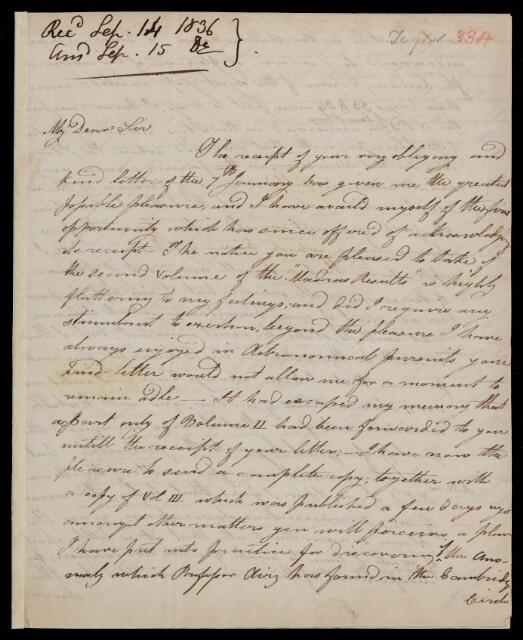 Recd Sep. 14 1836
Ansd Sep. 15 &c
334
My Dear Sir
The receipt of your very obliging and
kind letter of the 7th January has given me the greatest
possible pleasure, and I have availd myself of the first
opportunity which has since offered of acknowledging
its receipt - The notice you are pleased to take of
the second volume of the "Madras Results" is highly
flattering to my feelings, and did I require any
stimulant to exertion, beyond the pleasure I have
always enjoyed in Astronomical pursuits your
kind letter would not allow me for a moment to
remain idle — It had escaped my memory that
a part only of Volume II had been forwarded to you
untill the receipt of your letter; — I have now the
pleasure to send a complete copy, together with
a copy of Vol III which was published a few days ago
amongst other matters you will perceive, a plan
I have put into practice for discovering if the Ano-
maly which Professor Airy has found in the Cambridge
Circle